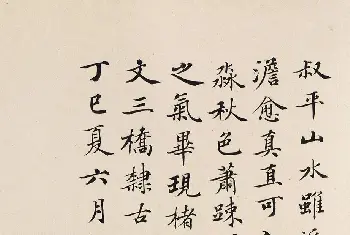 叔平山水雖
澹愈真直可
淼秋色蕭踈
之氣畢現楮
文三橋隸古
丁巳夏六月